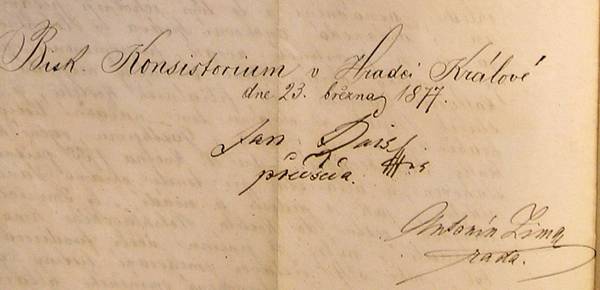 Bisk. Konsistorium v Hradci Králové
dne 23. března 1877.
Jan Rais
předseda.
Antonín Zima
rada.